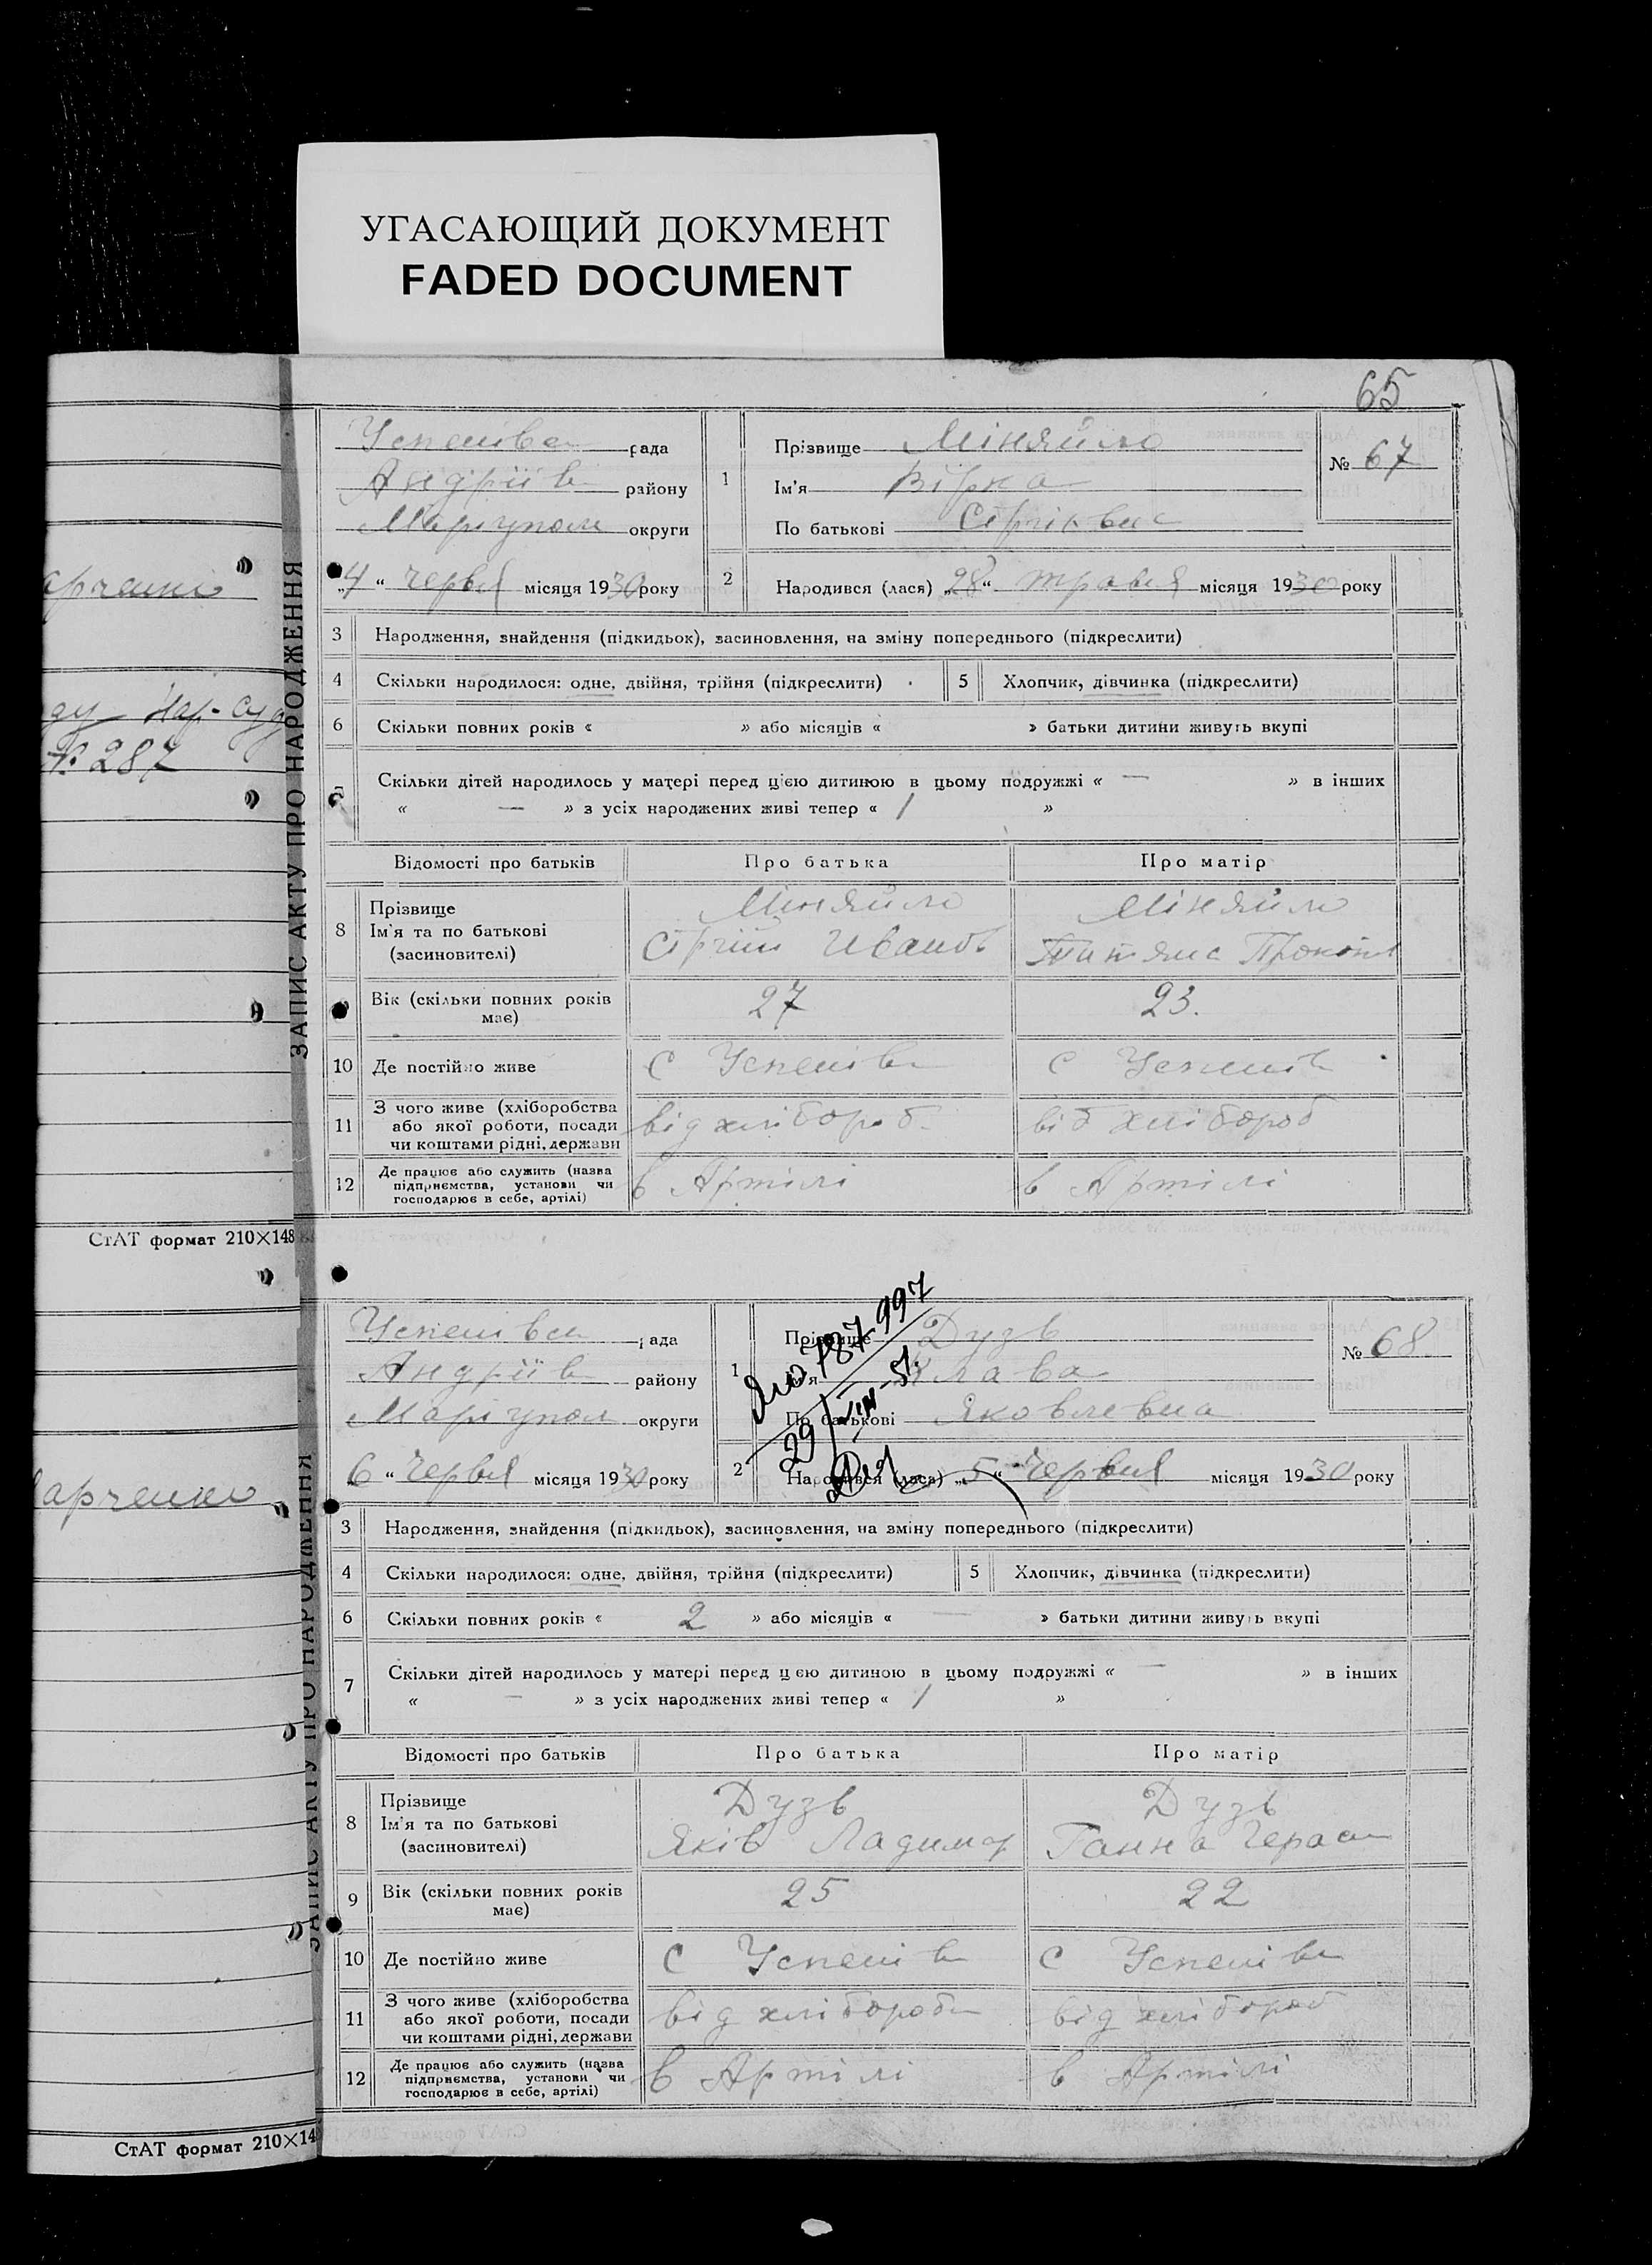 УГАСАЮЩИЙ ДОКУМЕНТ
FADED DOCUMENT
65
арченко
ду Нар-суд
№ 287
СтАТ формат 210×148
арченко
СтАТ формат 210×14
ЗАПИС АКТУ ПРО НАРОДЖЕННЯ
Успенівка рада
Андріїв району
Маріупол округи
„4“ червня місяця 1930 року
1 Прізвище Міняйло
Ім'я Вірка
По батькові Сергіївна
№ 67
2 Народився (лася) „28“ травня місяця 1930 року
3 Народження, знайдення (підкидьок), засиновлення, на зміну попереднього (підкреслити)
4 Скільки народилося: одне, двійня, трійня (підкреслити) 5 Хлопчик, дівчинка (підкреслити)
6 Скільки повних років « » або місяців « » батьки дитини живуть вкупі
7 Скільки дітей народилось у матері перед цією дитиною в цьому подружжі « — » в інших
« — » з усіх народжених живі тепер « 1 »
Відомості про батьків Про батька Про матір
8 Прізвище Міняйло Міняйло
Ім'я та по батькові Сергій Іванов Титяна Прокоп
(засиновителі)
9 Вік (скільки повних років має) 27 23.
10 Де постійно живе с Успенів с Успенів
11 З чого живе (хліборобства
або якої роботи, посади від хлібороб від хлібороб
чи коштами рідні, держави
12 Де працює або служить (назва
підприємства, установи чи в Артілі в Артілі
господарює в себе, артілі)
ЗАПИС АКТУ ПРО НАРОДЖЕННЯ
Успенівка рада
Андріїв району
Маріупол округи
6 “ червня місяця 1930 року
1 Прізвище Дузь
Ім'я Клава
По батькові Яковлевна
№ 68
787997
29/VIII-51.
2 Народився (лася) „5“ червня місяця 1930 року
3 Народження, знайдення (підкидьок), засиновлення, на зміну попереднього (підкреслити)
4 Скільки народилося: одне, двійня, трійня (підкреслити) 5 Хлопчик, дівчинка (підкреслити)
6 Скільки повних років « 2 » або місяців « — » батьки дитини живуть вкупі
7 Скільки дітей народилось у матері перед цією дитиною в цьому подружжі « — » в інших
« — » з усіх народжених живі тепер « 1 »
Відомості про батьків Про батька Про матір
8 Прізвище Дузь Дузь
Ім'я та по батькові Яків Ладимир Ганна Герас
(засиновителі)
9 Вік (скільки повних років має) 25 22
10 Де постійно живе с Успенів с Успенів
11 З чого живе (хліборобства
або якої роботи, посади від хлібороб від хлібороб
чи коштами рідні, держави
12 Де працює або служить (назва
підприємства, установи чи в Артілі в Артілі
господарює в себе, артілі)